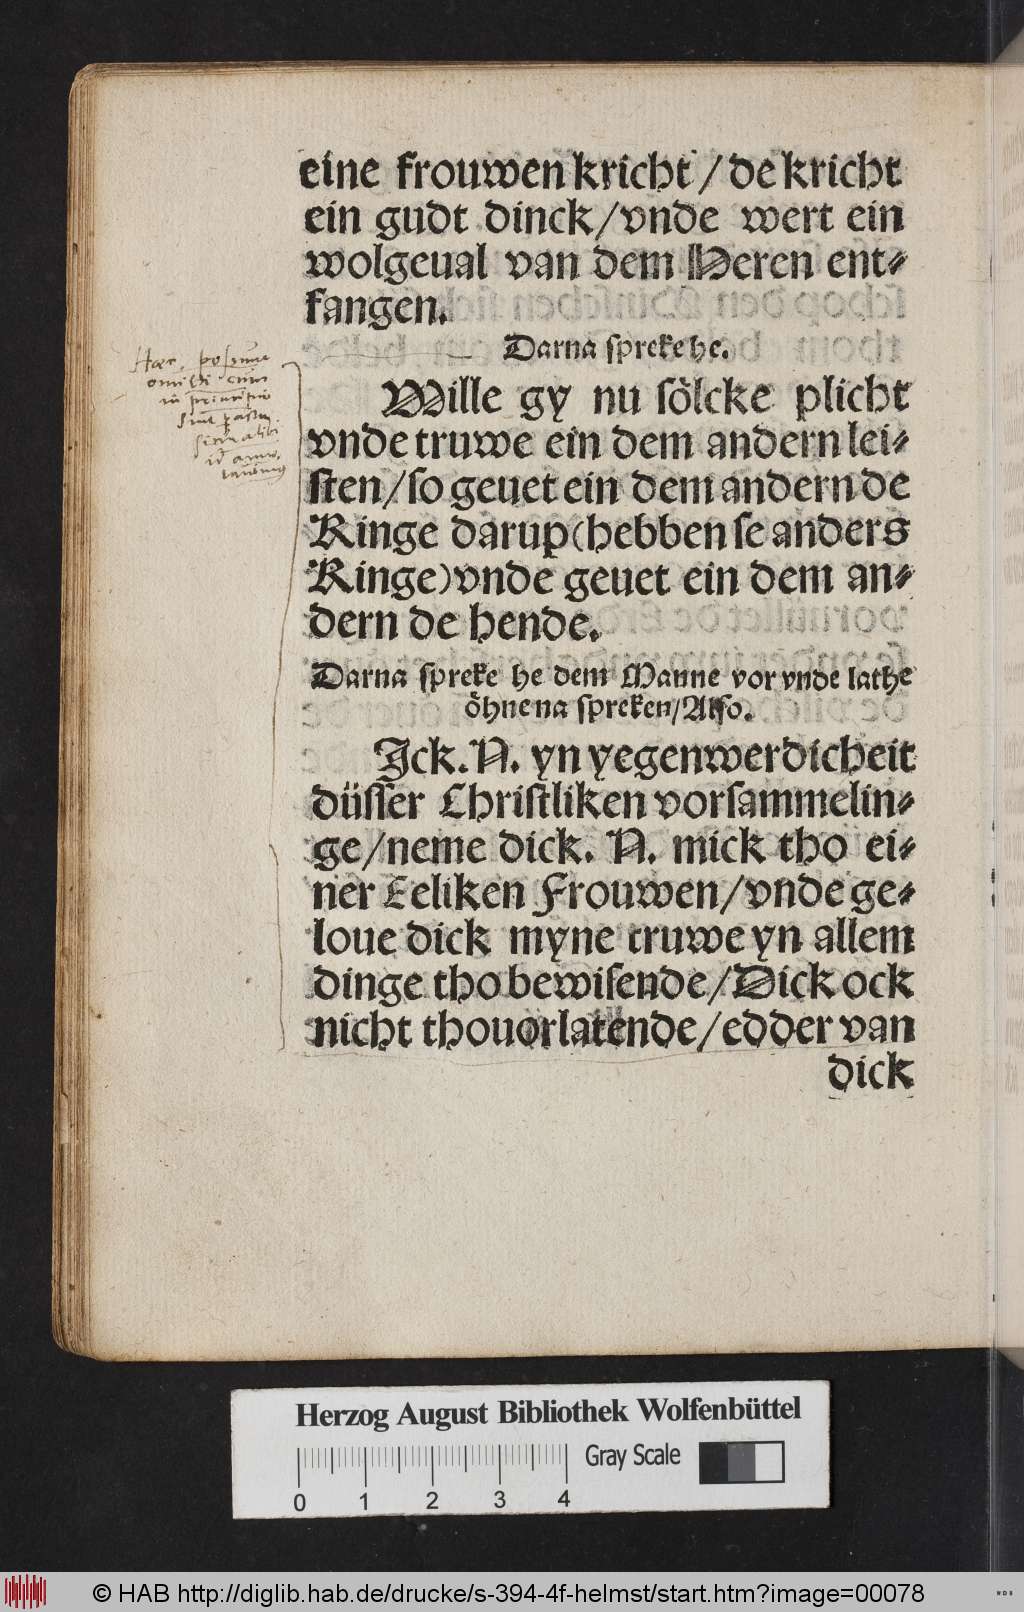 eine frouwen kricht / de kricht
ein gudt dinck / vnde wert ein
wolgeual van dem Heren ent⸗
fangen.
Darna spreke he.
Wille gy nu sölcke plicht
vnde truwe ein dem andern lei⸗
sten / so geuet ein dem andern de
Ringe darup (hebben se anders
Ringe) vnde geuet ein dem an⸗
dern de hende.
Darna spreke he dem Manne vor vnde lathe
öhne na spreken / Also.
Jck. N. yn yegenwerdicheit
düsser Christliken vorsammelin⸗
ge / neme dick. N. mick tho ei⸗
ner Eeliken Frouwen / vnde ge⸗
loue dick myne truwe yn allem
dinge tho bewisende / Dick ock
nicht thouorlatende / edder van
dick
Haec
omitti cum
in principio
sint
Herzog August Bibliothek Wolfenbüttel
0 1 2 3 4 Gray Scale
© HAB http://diglib.hab.de/drucke/s-394-4f-helmst/start.htm?image=00078